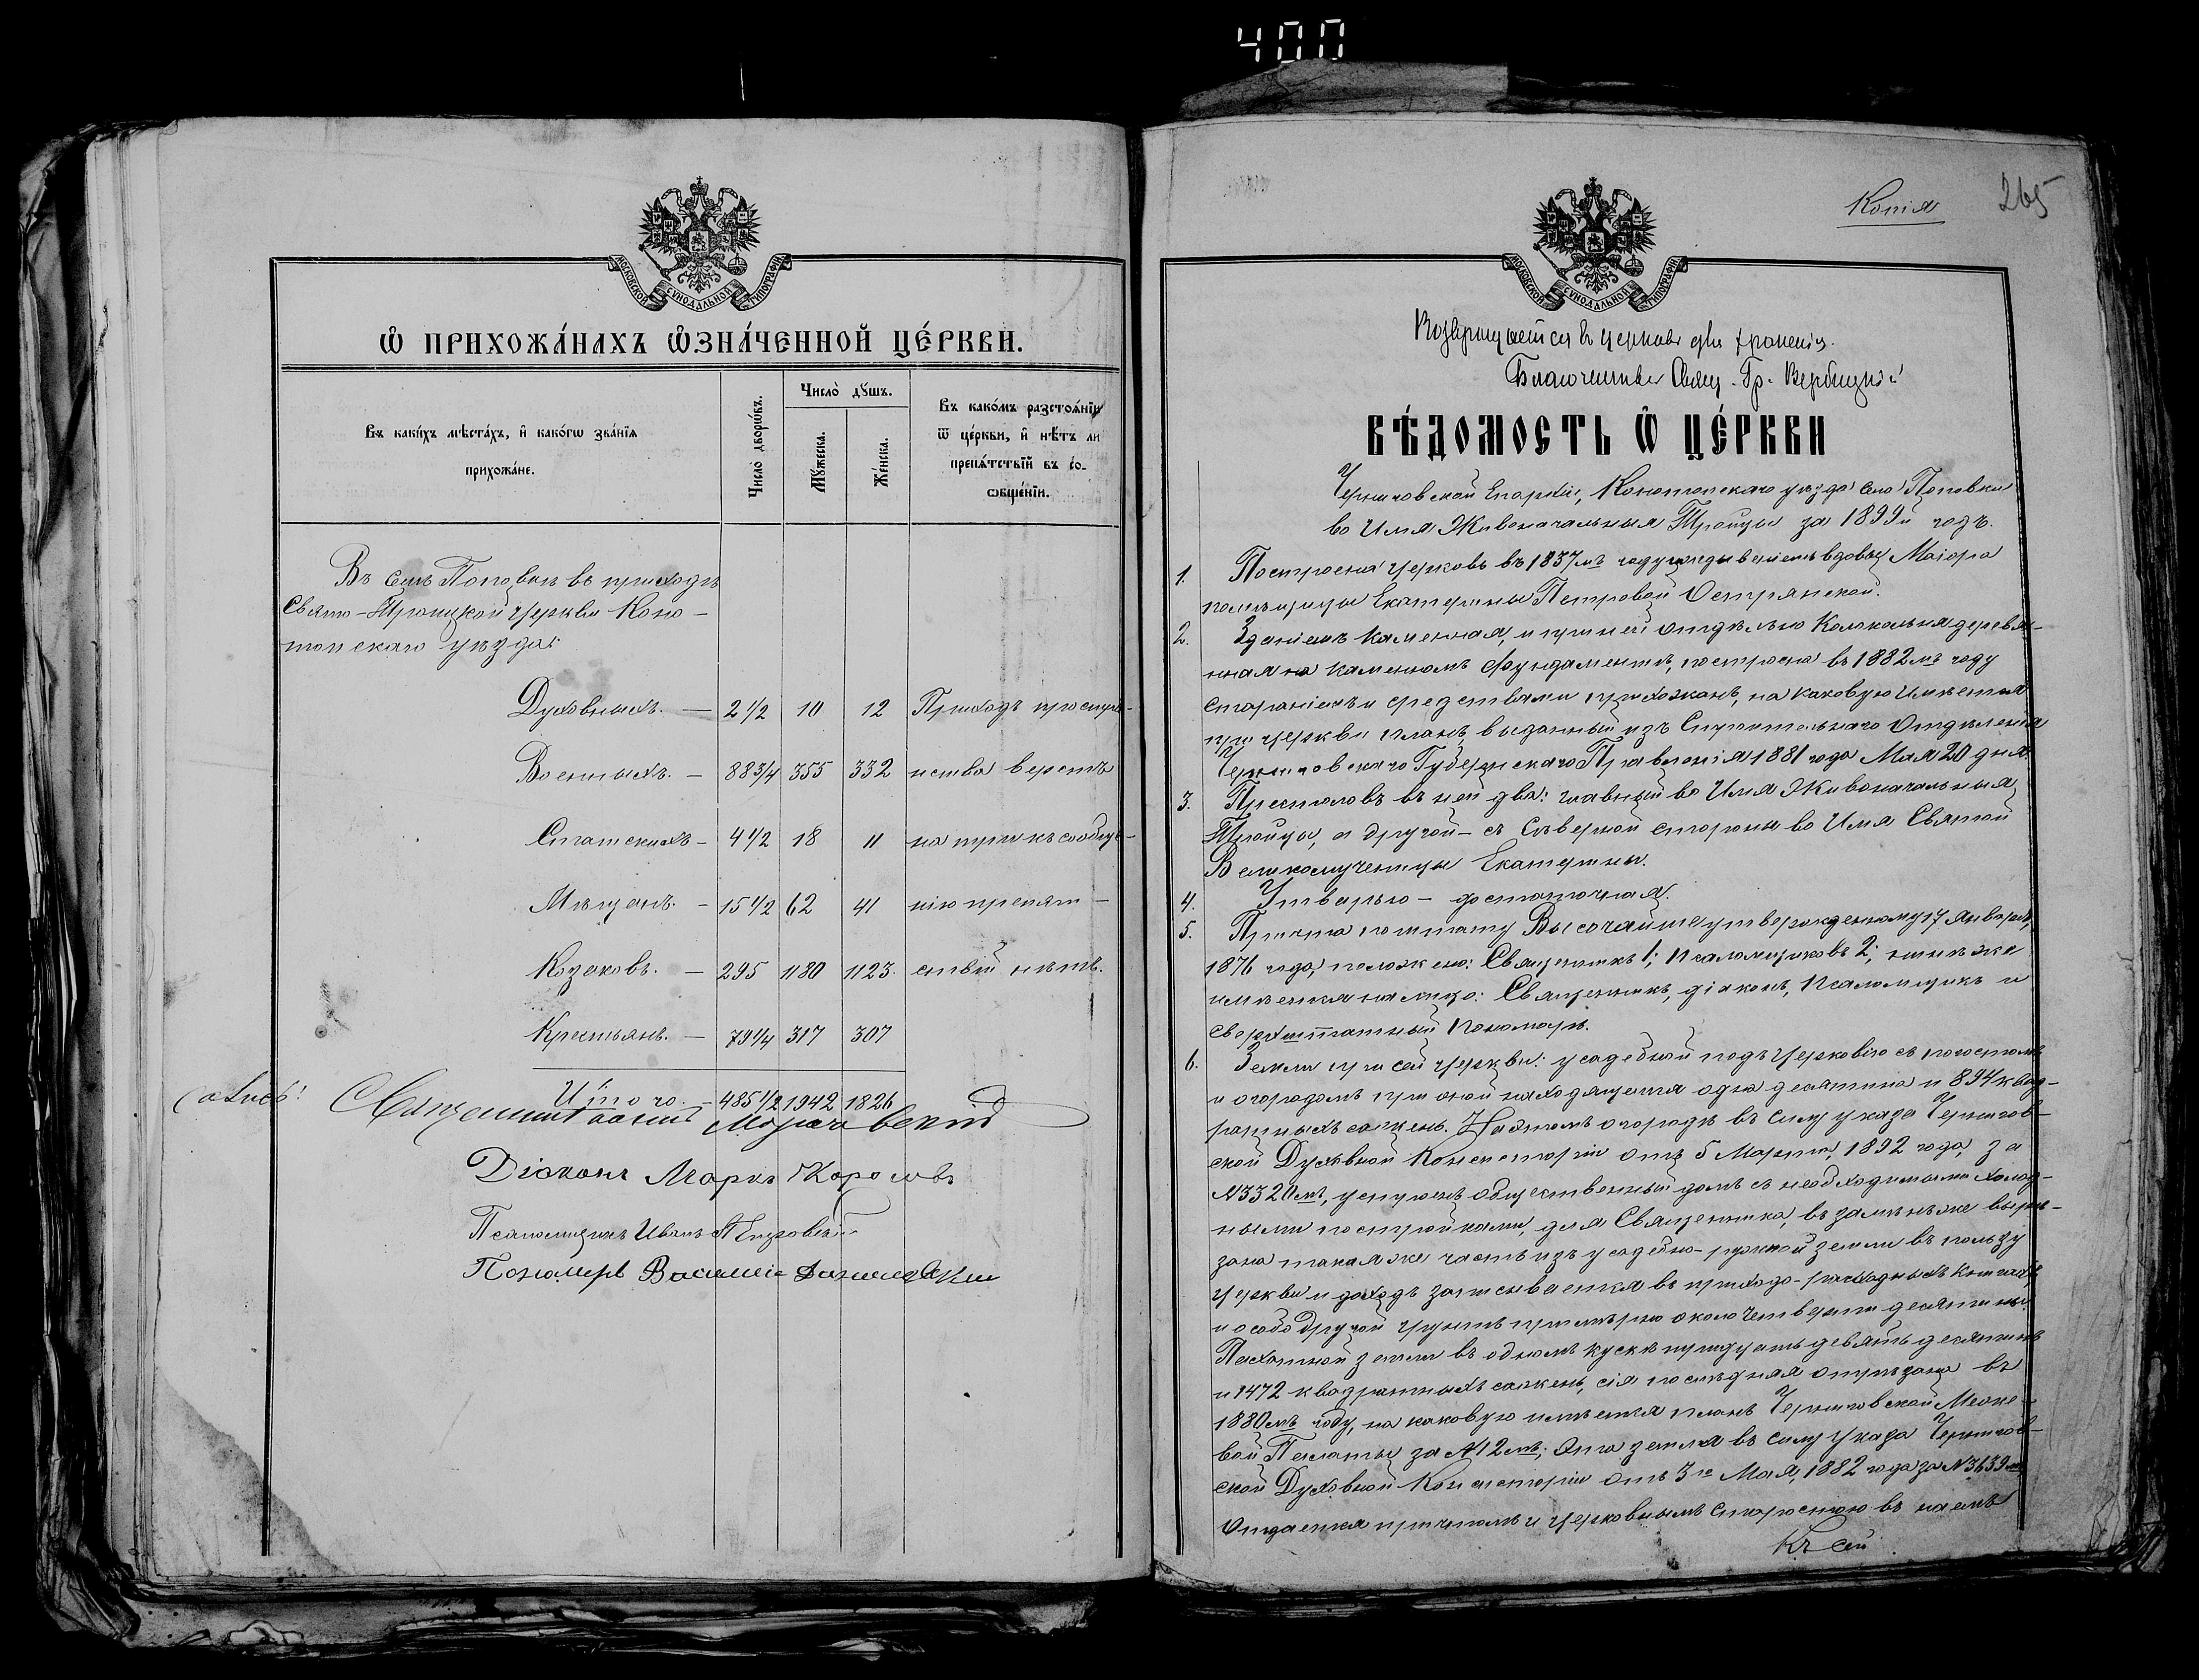 400
МОСКОВСКОЙ СУНОДАЛЬНОЙ ТИПОГРАФІИ
Ѡ ПРИХОЖА́НАХЪ Ѡ҆ЗНА́ЧЕННОЙ ЦЕ́РКВИ.
Въ каки́хъ мѣста́хъ, и҆ како́гѡ зва́нїѧ прихожа́не.
Число̀ дворѡ́въ.
Число̀ дꙋ́шъ.
Мꙋ́жеска.
Же́нска.
Въ како́мъ разстоѧ́нїи ѿ це́ркви, и҆ нѣ́тъ ли препѧ́тствїй въ со-ѻбще́нїи.
Въ селѣ Поповкѣ въ приходѣ
Свято-Троицкой церкви Коно-
топскаго уѣзда:
Духовныхъ. — 2 1/2 10 12 Приходъ простра-
Военныхъ. — 88 3/4 355 332 нства верстъ
Статскихъ — 4 1/2 18 11 на пути къ сообще-
Мѣщанъ. — 15 1/2 62 41 нію препят-
Козаковъ. — 295 1180 1123. ствій нѣтъ.
Крестьянъ. — 79 1/4 317 307
Итого. — 485 1/2 1942 1826
Священникъ
Діаконъ Марко
Псаломщикъ Иванъ
Пономарь Василій
Копія
265
МОСКОВСКОЙ СУНОДАЛЬНОЙ ТИПОГРАФІИ
Возвращается въ церковь для храненія.
Благочинный Свящ. Гр. Вербицкій
ВѢ́ДОМОСТЬ Ѡ҆ ЦЕ́РКВИ
Черниговской Епархіи, Конотопскаго уѣзда села Поповки
во Имя Живоначальныя Тройцы за 1899й годъ.
1. Построена церковь въ 1837мъ году иждивеніемъ вдовы Маіора
помѣщицы Екатерины Петровой Острянской.
2. Зданіемъ каменная, и при ней отдѣльно колокольня деревя-
нная на каменномъ фундаментѣ, построена въ 1882мъ году
стараніемъ и средствами прихожанъ, на каковую имѣется
при церкви планъ, выданный изъ Строительнаго Отдѣленія
Черниговскаго Губернскаго Правленія 1881 года Мая 20 дня.
3. Престоловъ въ ней два: главный во Имя Живоначальныя
Тройцы, а другой — съ сѣверной стороны во Имя Святой
Великомученицы Екатерины.
4. Утварью — достаточная.
5. Причта по штату Высочайше утвержденному 17 Января,
1876 года, положено: Священникъ 1; псаломщиковъ 2; нынѣ же
имѣется на лицо: Священникъ, діаконъ, псаломщикъ и
сверхштатный пономарь.
6. Земли при сей церкви: усадебной подъ церковію съ погостомъ
и огородомъ при оной находящемся одна десятина и 894 квад-
ратныхъ сажень. На этомъ огородѣ въ силу указа Чернигов-
ской Духовной Консисторіи отъ 5 Марта, 1892 года, за
№ 3320мъ, устроенъ общественный домъ съ необходимыми холод-
ными постройками, для Священника, въ замѣнъ же вырѣ-
зана такая же часть изъ усадебно-ружной земли въ пользу
церкви и доходъ записывается въ приходо-расходныхъ книгахъ,
и особо другой грунтъ примѣрно около четверти десятины.
Пахотной земли въ одномъ кускѣ тридцать девять десятинъ
и 1472 квадратныхъ сажень, сія послѣдняя отрѣзана въ
1880мъ году, на каковую имѣется планъ Черниговской Меже-
вой Палаты за № 12мъ; эта земля въ силу Указа Чернигов-
ской Духовной Консисторіи отъ 3го Мая, 1882 года за № 3639мъ
отдается причтомъ и церковнымъ старостою въ наемъ
Къ сей